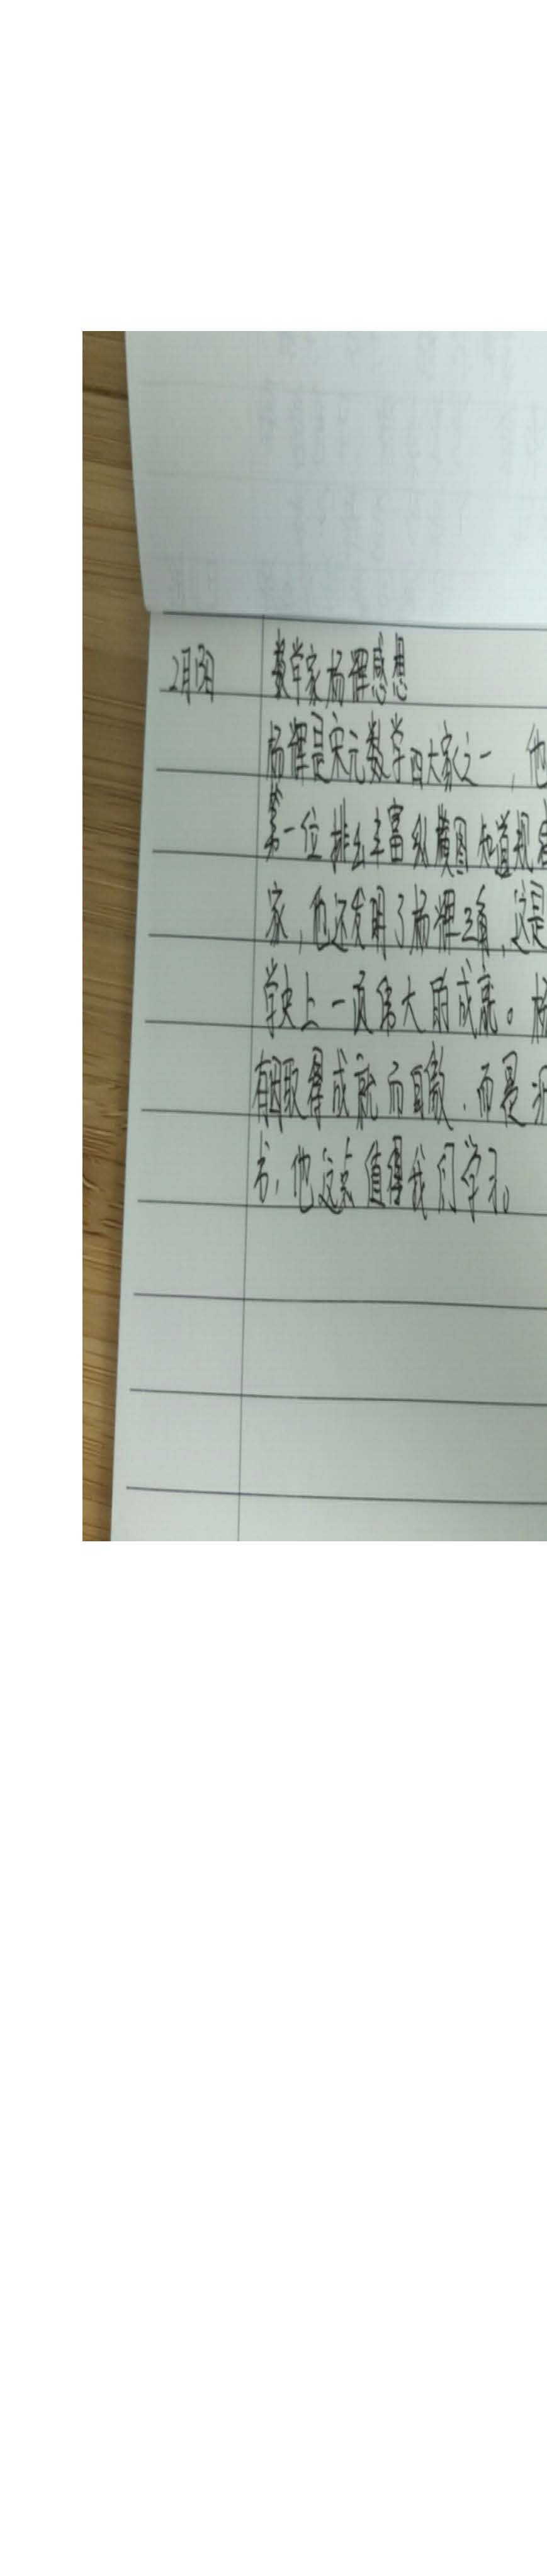 2月
数学家杨辉感想
杨辉是宋元数学四大家之一，他
第一位排出丰富纵横图和道规
家，他还发明了杨辉三角，这是
学史上一项伟大的成就。杨
有因取得成就而自傲，而是
书，他这点值得我们学习。